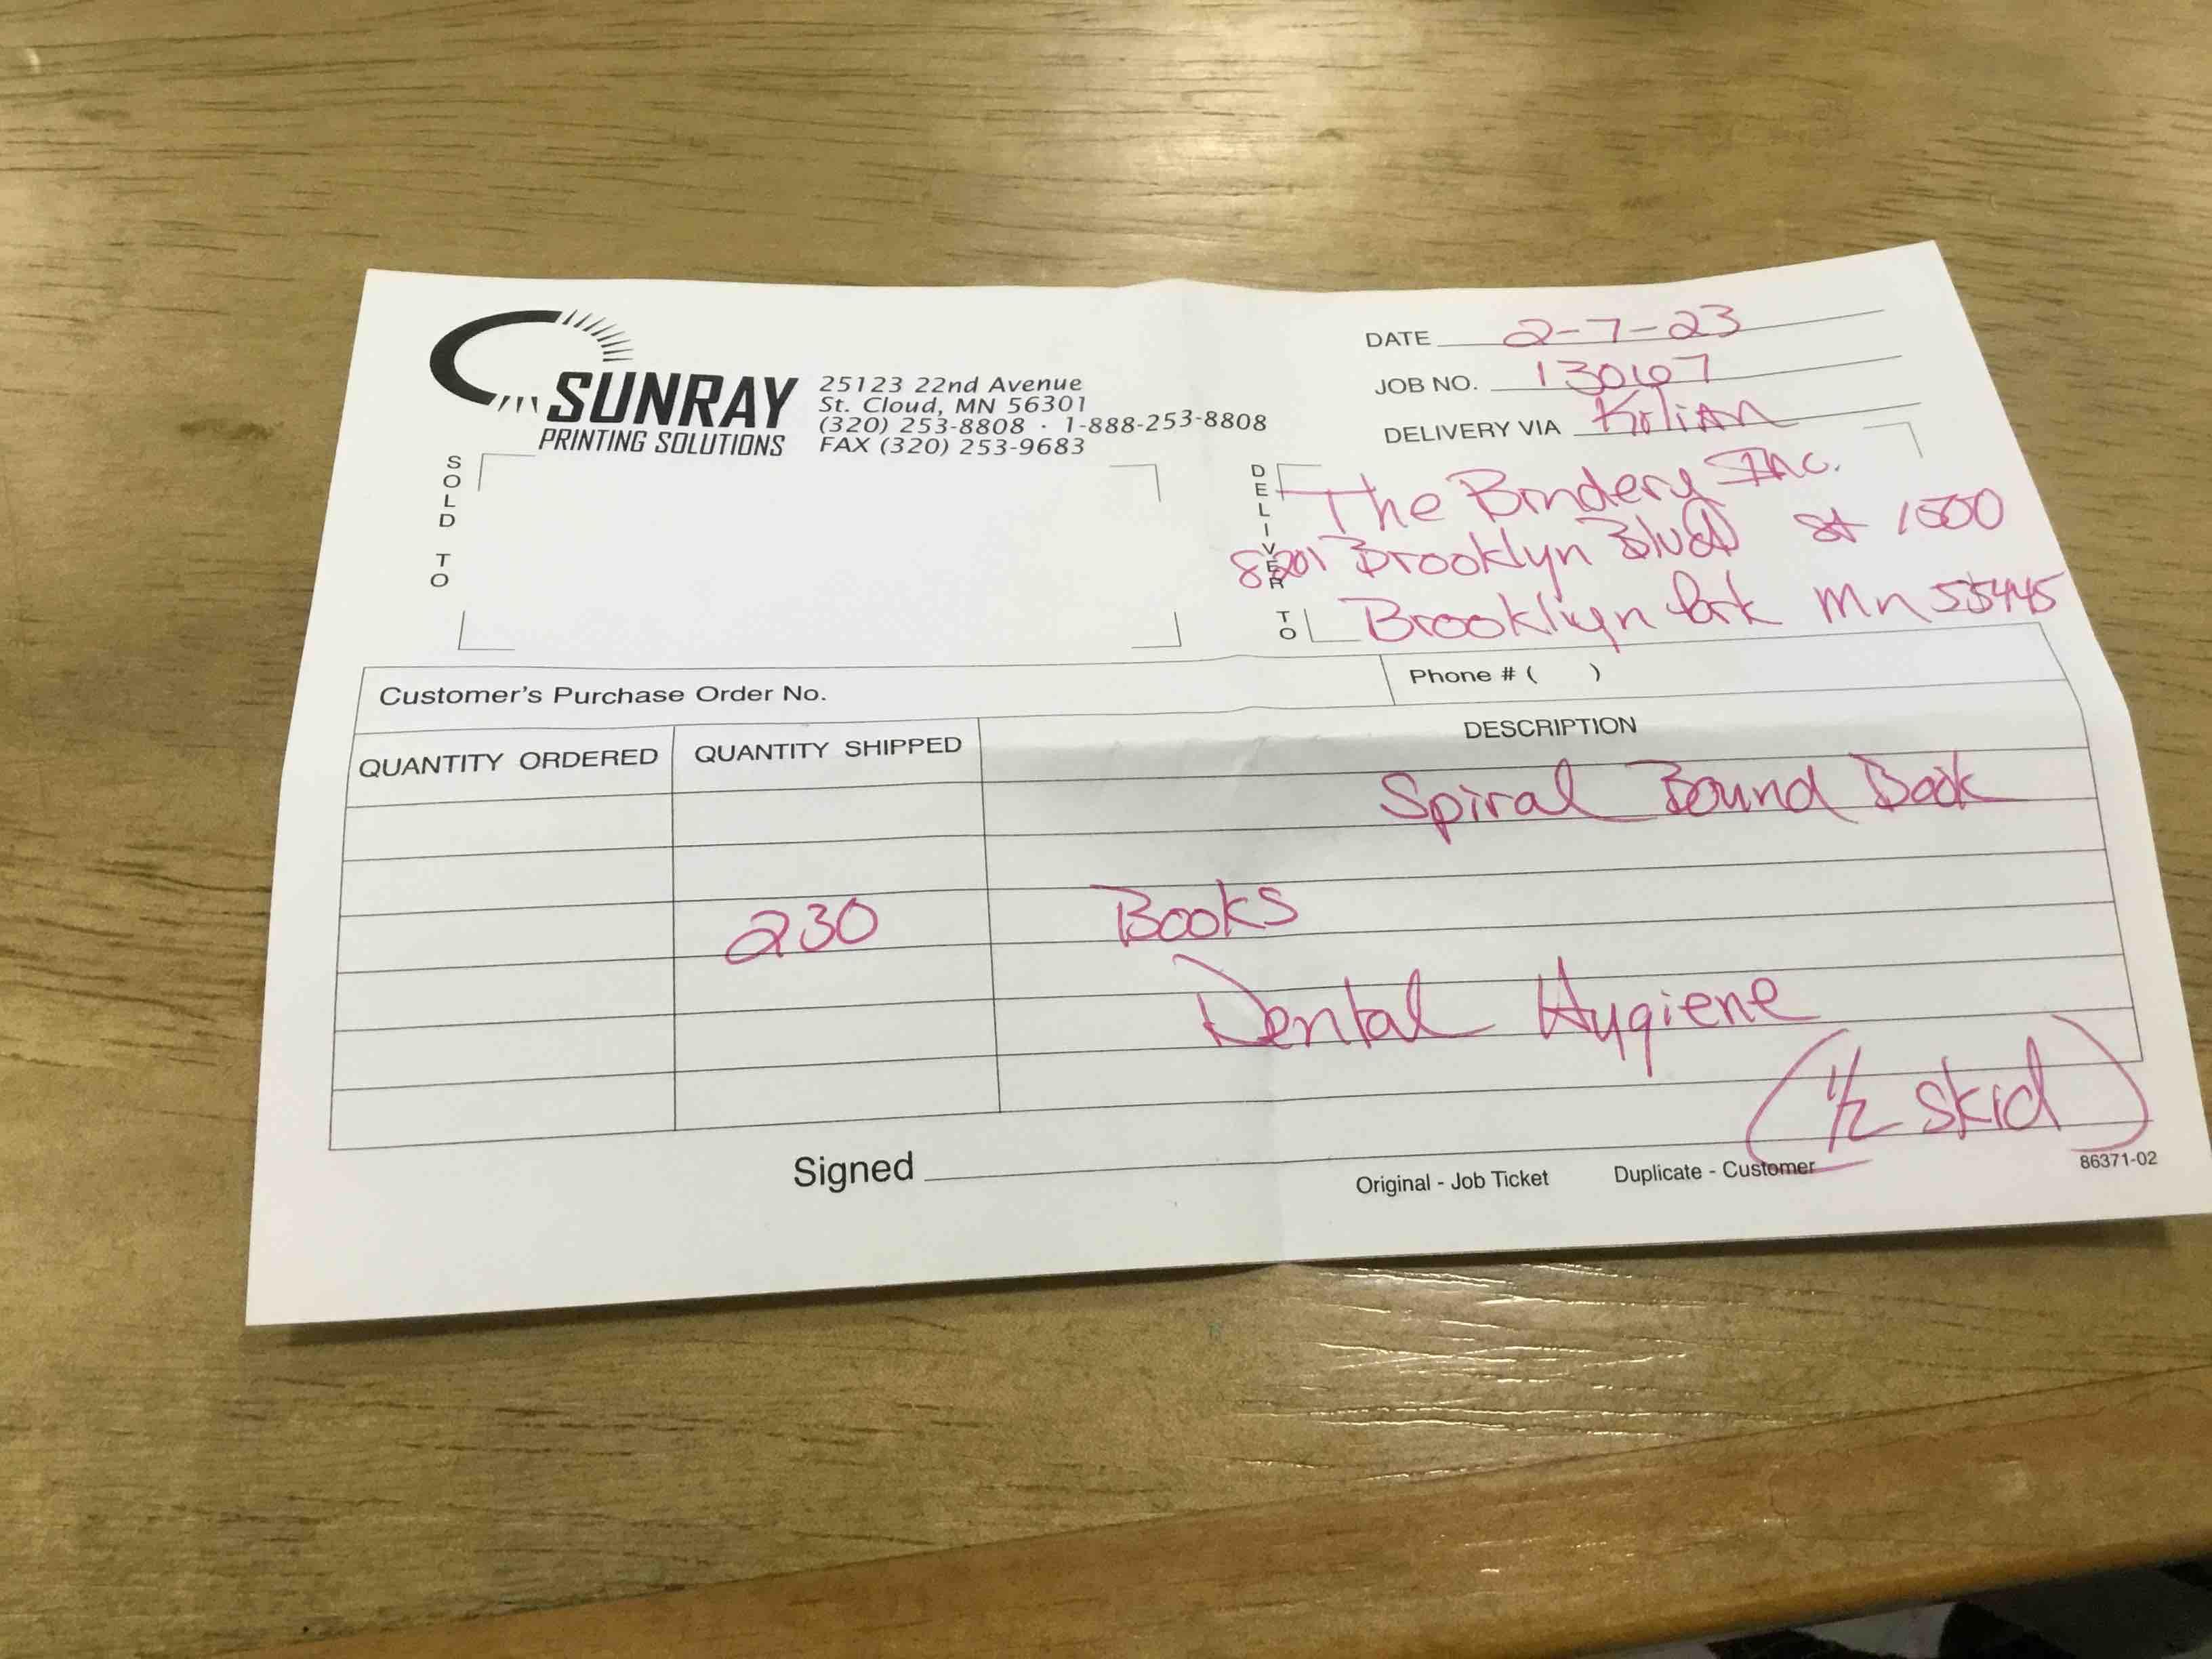 SUNRAY
PRINTING SOLUTIONS
25123 22nd Avenue
St. Cloud, MN 56301
(320) 253-8808 · 1-888-253-8808
FAX (320) 253-9683
DATE 2-7-23
JOB NO. 13067
DELIVERY VIA
SOLD TO
DELIVER TO
The Bindery Inc.
8201 Brooklyn Blvd st 1500
Brooklyn Park Mn 55445
Customer's Purchase Order No.
Phone # ( )
QUANTITY ORDERED
QUANTITY SHIPPED
DESCRIPTION
Spiral Bound Book
230 Books
Dental Hygiene
(1/2 skid)
Signed
Original - Job Ticket
Duplicate - Customer
86371-02